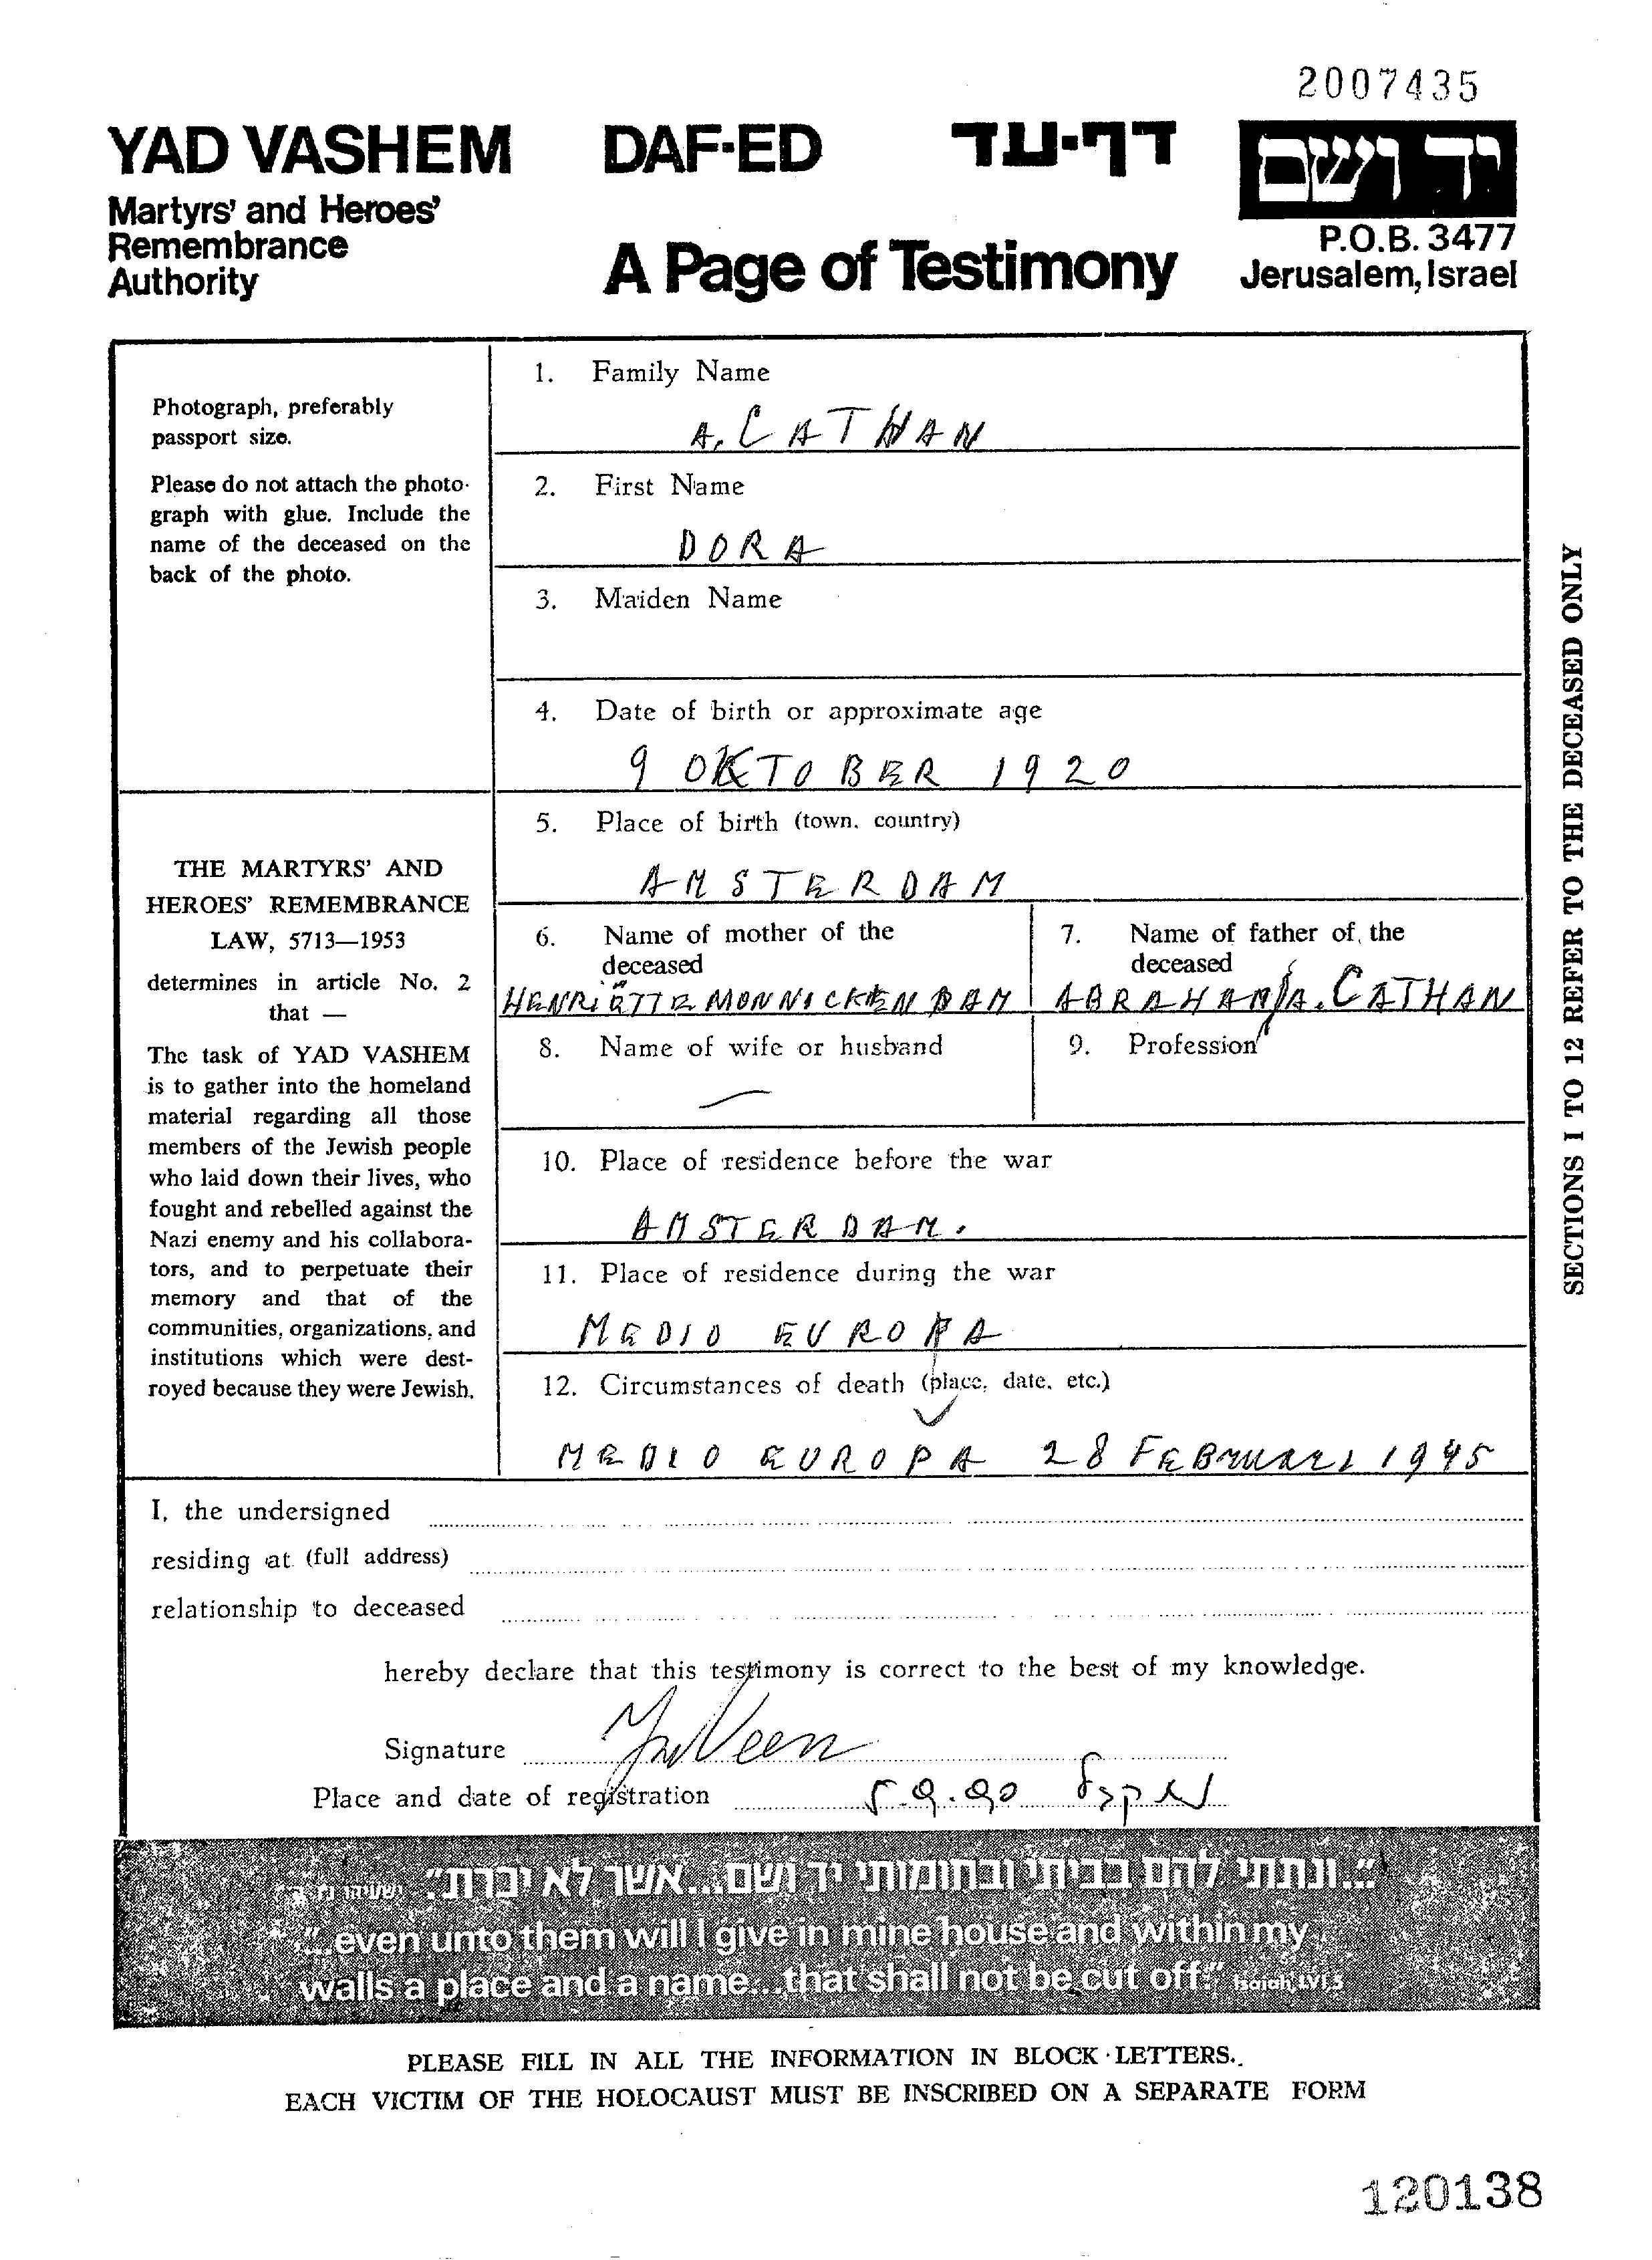 2007435
YAD VASHEM DAF-ED דף-עד יד ושם
Martyrs' and Heroes'
Remembrance
Authority
A Page of Testimony
P.O.B. 3477
Jerusalem, Israel
Photograph, preferably
passport size.
Please do not attach the photo-
graph with glue. Include the
name of the deceased on the
back of the photo.
THE MARTYRS' AND
HEROES' REMEMBRANCE
LAW, 5713—1953
determines in article No. 2
that —
The task of YAD VASHEM
is to gather into the homeland
material regarding all those
members of the Jewish people
who laid down their lives, who
fought and rebelled against the
Nazi enemy and his collabora-
tors, and to perpetuate their
memory and that of the
communities, organizations, and
institutions which were dest-
royed because they were Jewish.
1. Family Name
A. CATHAN
2. First Name
DORA
3. Maiden Name
4. Date of birth or approximate age
9 OKTOBER 1920
5. Place of birth (town, country)
AMSTERDAM
6. Name of mother of the
deceased
HENRIËTTE MONNICKENDAM
7. Name of father of the
deceased
ABRAHAM A. CATHAN
8. Name of wife or husband
—
9. Profession
10. Place of residence before the war
AMSTERDAM.
11. Place of residence during the war
MEDIO EUROPA
12. Circumstances of death (place, date, etc.)
MEDIO EUROPA 28 FEBRUARI 1945
SECTIONS 1 TO 12 REFER TO THE DECEASED ONLY
I, the undersigned
residing at (full address)
relationship to deceased
hereby declare that this testimony is correct to the best of my knowledge.
Signature
Place and date of registration
"...ונתתי להם בביתי ובחומותי יד ושם...אשר לא יכרת." ישעיהו נו, ה
"...even unto them will I give in mine house and within my
walls a place and a name...that shall not be cut off." Isaiah, LVI, 5
PLEASE FILL IN ALL THE INFORMATION IN BLOCK LETTERS.
EACH VICTIM OF THE HOLOCAUST MUST BE INSCRIBED ON A SEPARATE FORM
120138